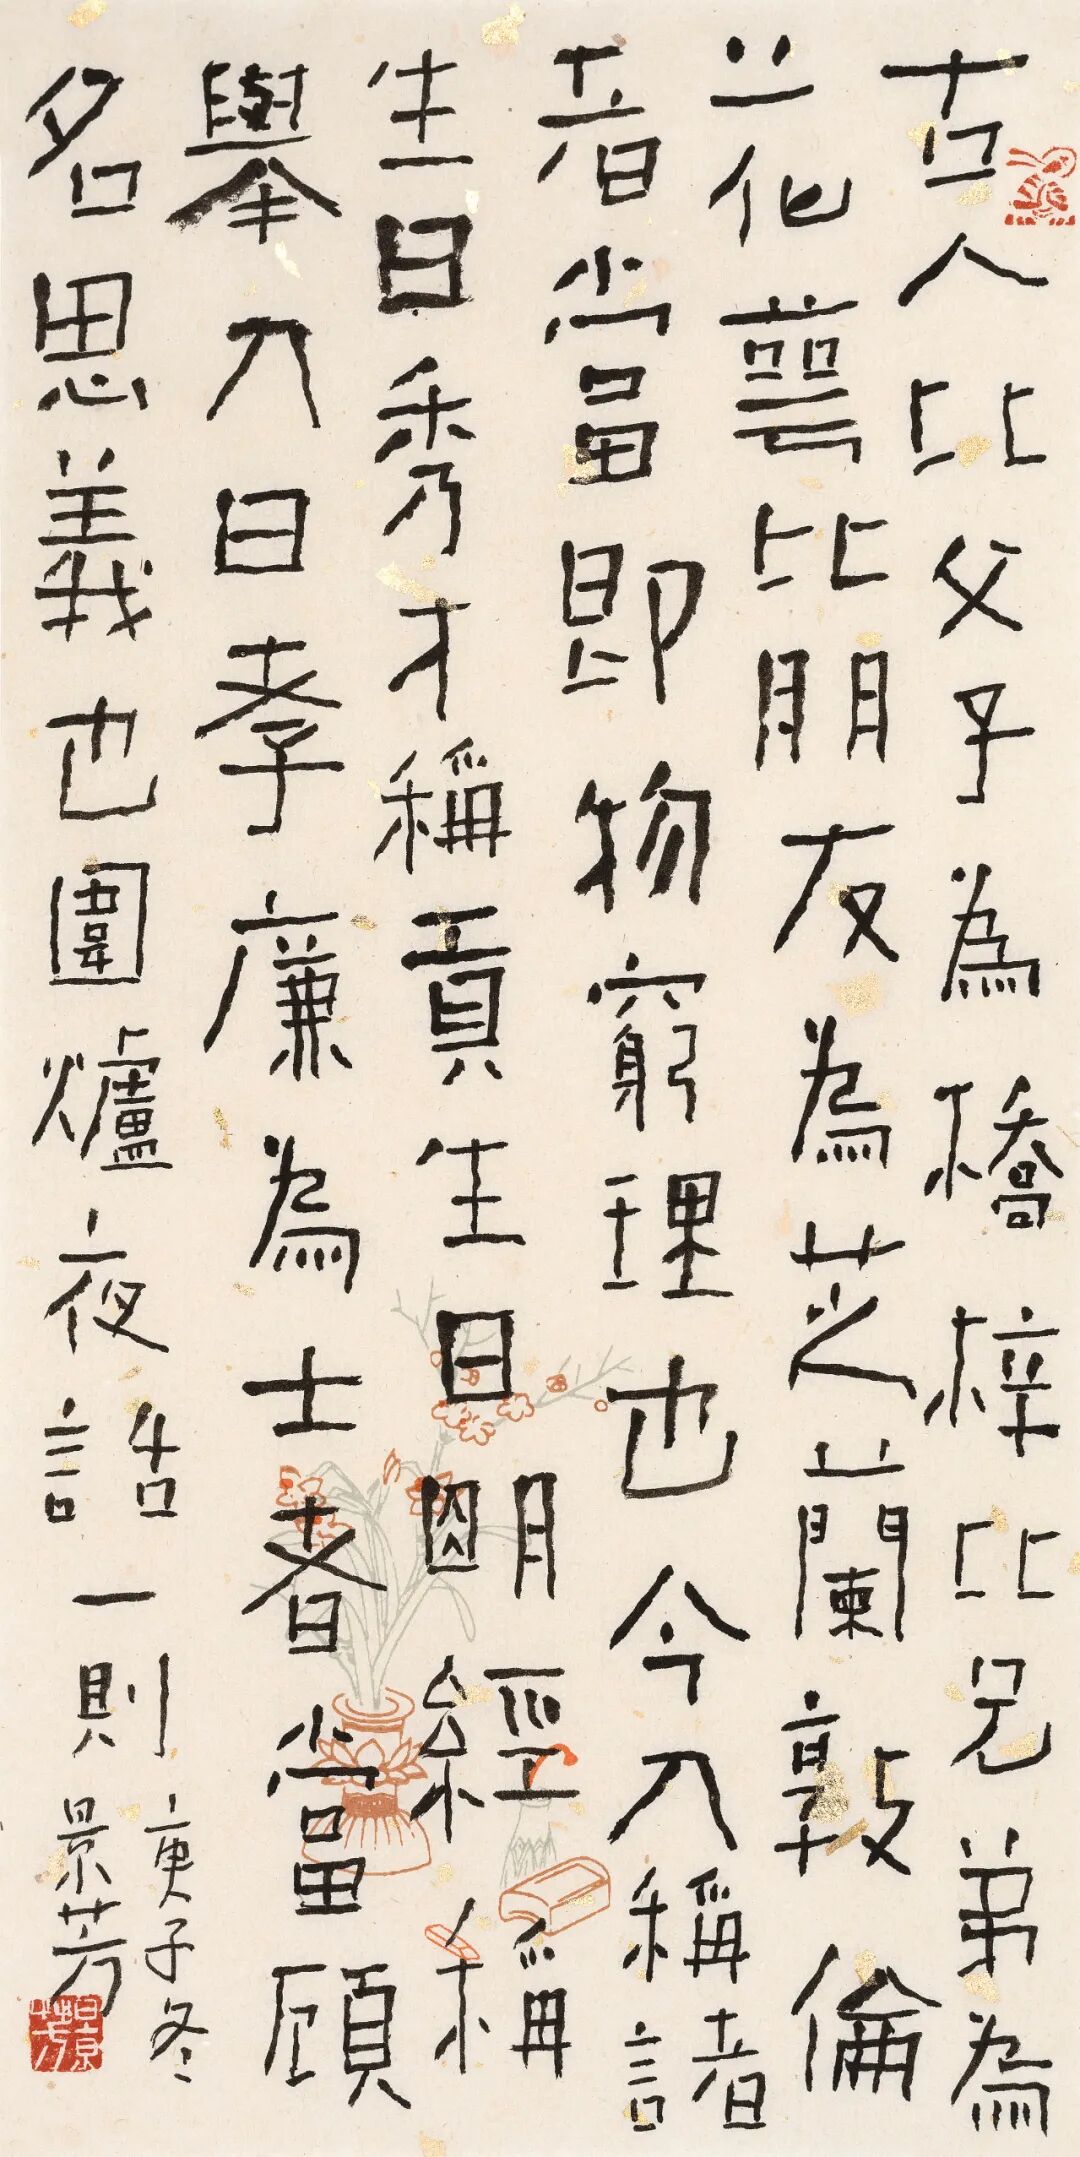 古人比父子為橋梓比兄弟為
花萼比朋友為芝蘭敦倫
者當即物窮理也今人稱諸
生曰秀才稱貢生曰朙經稱
舉人曰孝廉為士者當顧
名思義也圍爐夜話一則
庚子冬
景芳
景芳